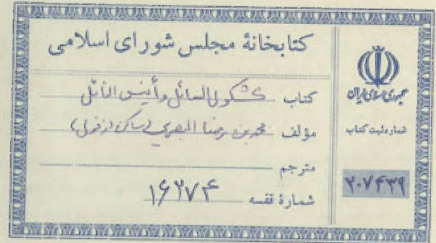 کتابخانهٔ مجلس شورای اسلامی
کتاب کشکول السائل و أنیس النائل
مؤلف محمد بن رضا البصری (ساکن دزفول)
مترجم
شمارهٔ قفسه ۱۶۲۷۴
جمهوری اسلامی ایران
شماره ثبت کتاب
۲۰۷۴۳۹